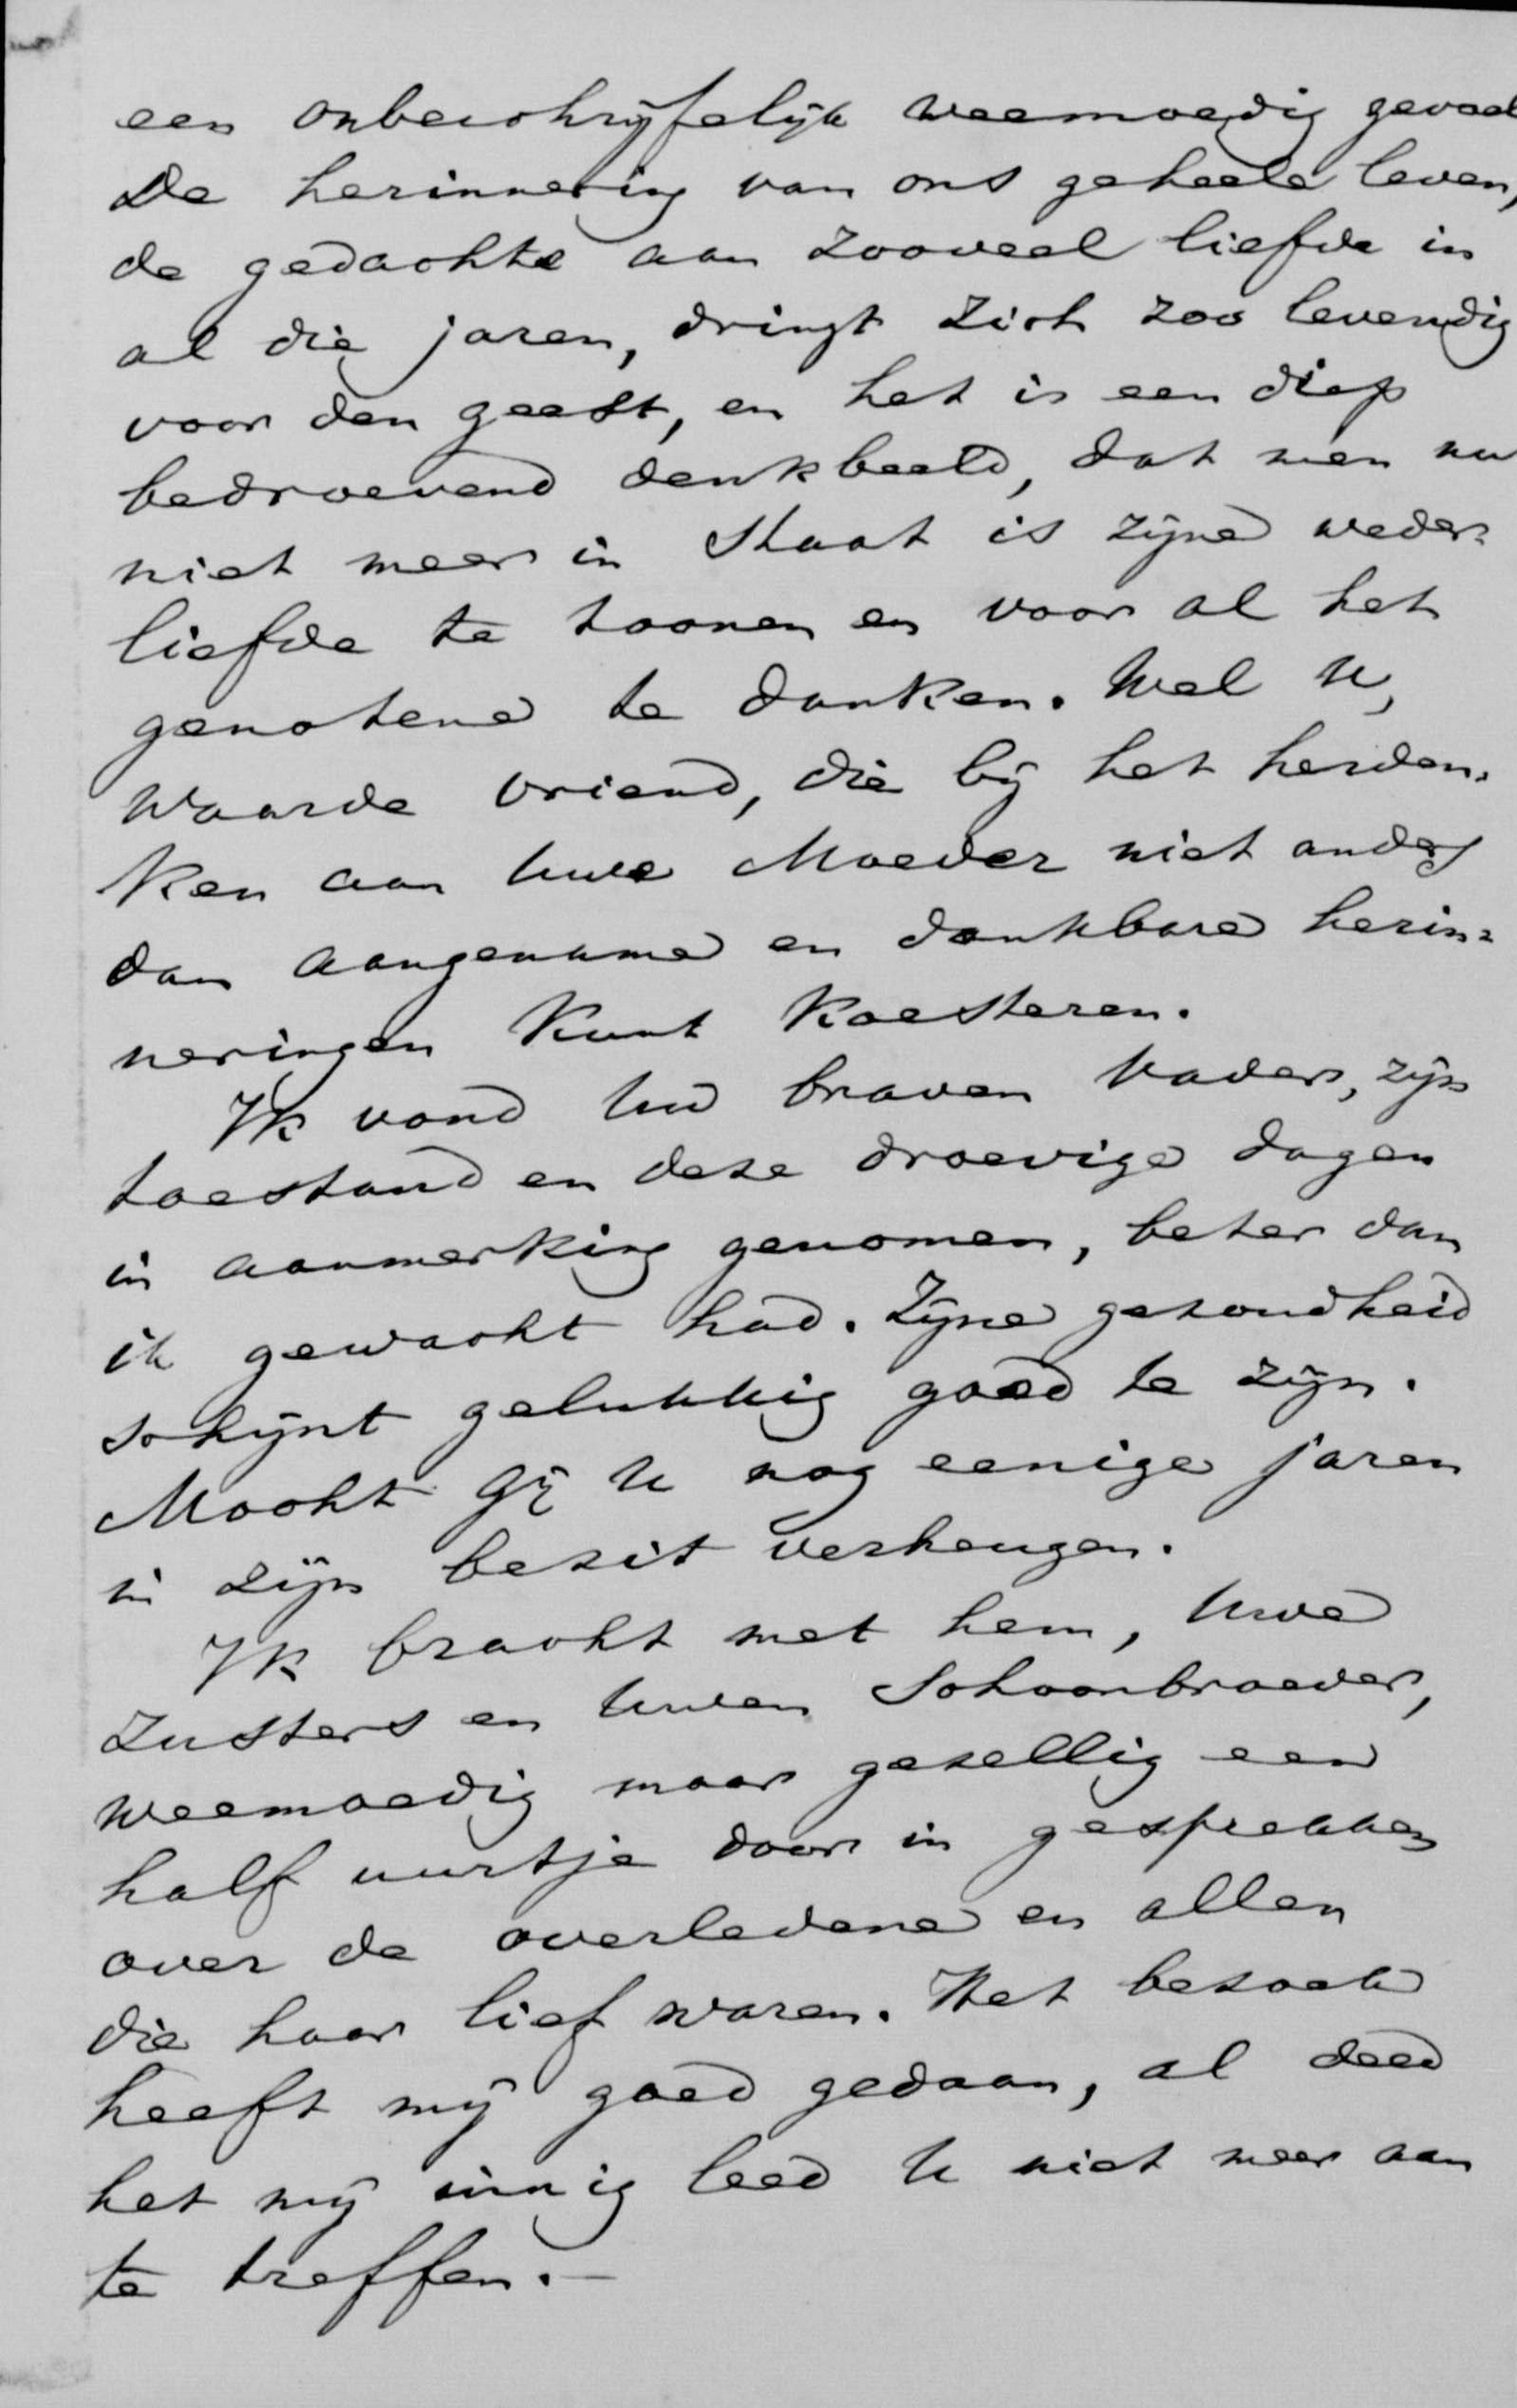 een onbeschrijfelijk weemoedig gevoel
De herinnering van ons geheele leven,
de gedachte aan zooveel liefde in
al die jaren, dringt zich zoo levendig
voor den geest, en het is een diep
bedroevend denkbeeld, dat men nu
niet meer in staat is zijne weder-
liefde te toonen en voor al het
genotene te danken. Wel U,
Waarde vriend, die bij het herden-
ken aan Uwe Moeder niet anders
dan aangename en dankbare herin-
neringen kunt koesteren.
Ik vond Uw braven Vader, zijn
toestand en deze droevige dagen
in aanmerking genomen, beter dan
ik gewacht had. Zijne gezondheid
schijnt gelukkig goed te zijn.
Mocht Gij U nog eenige jaren
in zijn bezit verheugen.
Ik bracht met hem, Uwe
Zusters en Uwen Schoonbroeder,
weemoedig maar gezellig een
half uurtje door in gesprekken
over de overledene en allen
die haar lief waren. Het bezoek
heeft mij goed gedaan, al deed
het mij innig leed U niet meer aan
te treffen.-